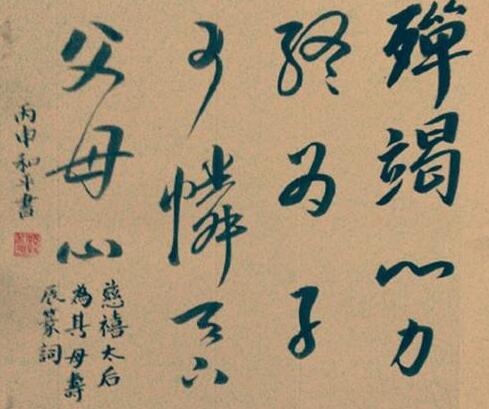 殫竭心力
終为子
可憐天下
父母心
慈禧太后
為其母壽
辰篆詞
丙申和平書